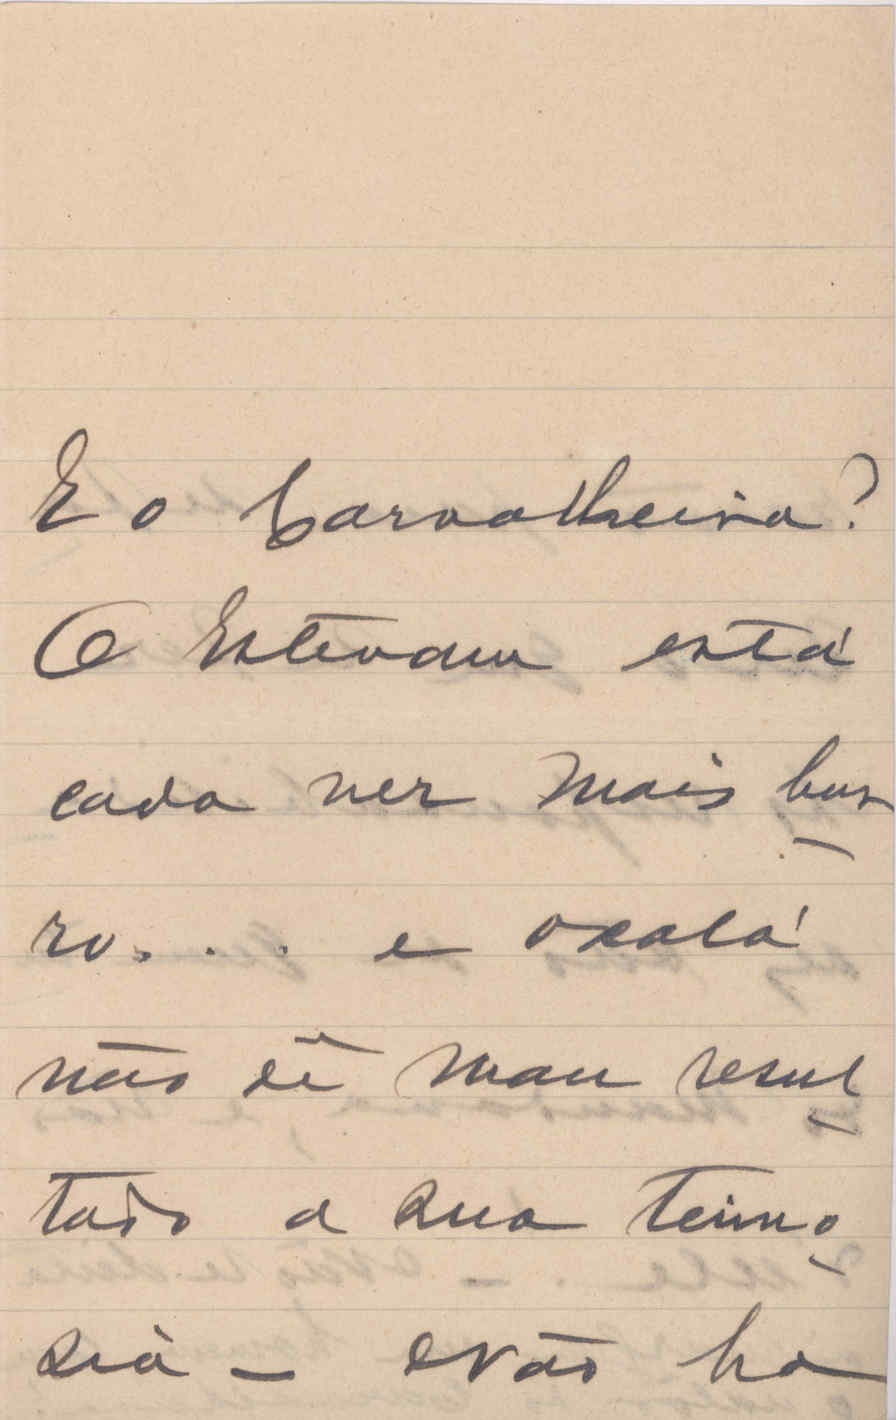 E o Carvalheira?
O Estevam está
cada vez mais bur-
ro.... e oxalá
não dê mau resul-
tado a sua teimo-
sia – Não ha